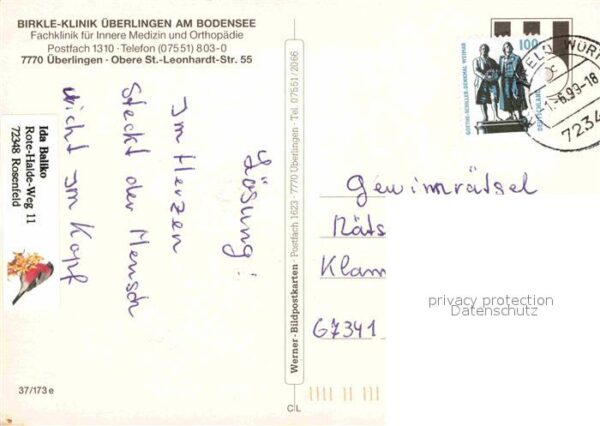 BIRKLE-KLINIK ÜBERLINGEN AM BODENSEE
Fachklinik für Innere Medizin und Orthopädie
Postfach 1310 · Telefon (0 75 51) 803-0
7770 Überlingen · Obere St.-Leonhardt-Str. 55
Lösung:
Im Herzen
steckt der Mensch
nicht im Kopf
Ida Baliko
Rote-Halde-Weg 11
72348 Rosenfeld
37/173 e
Werner-Bildpostkarten · Postfach 1623 · 7770 Überlingen · Tel. 07551/2066
C L
100
GOETHE-SCHILLER-DENKMAL WEIMAR
DEUTSCHLAND
6.99-18
7234
Gewinnrätsel
Räts
Klam
67341
privacy protection
Datenschutz